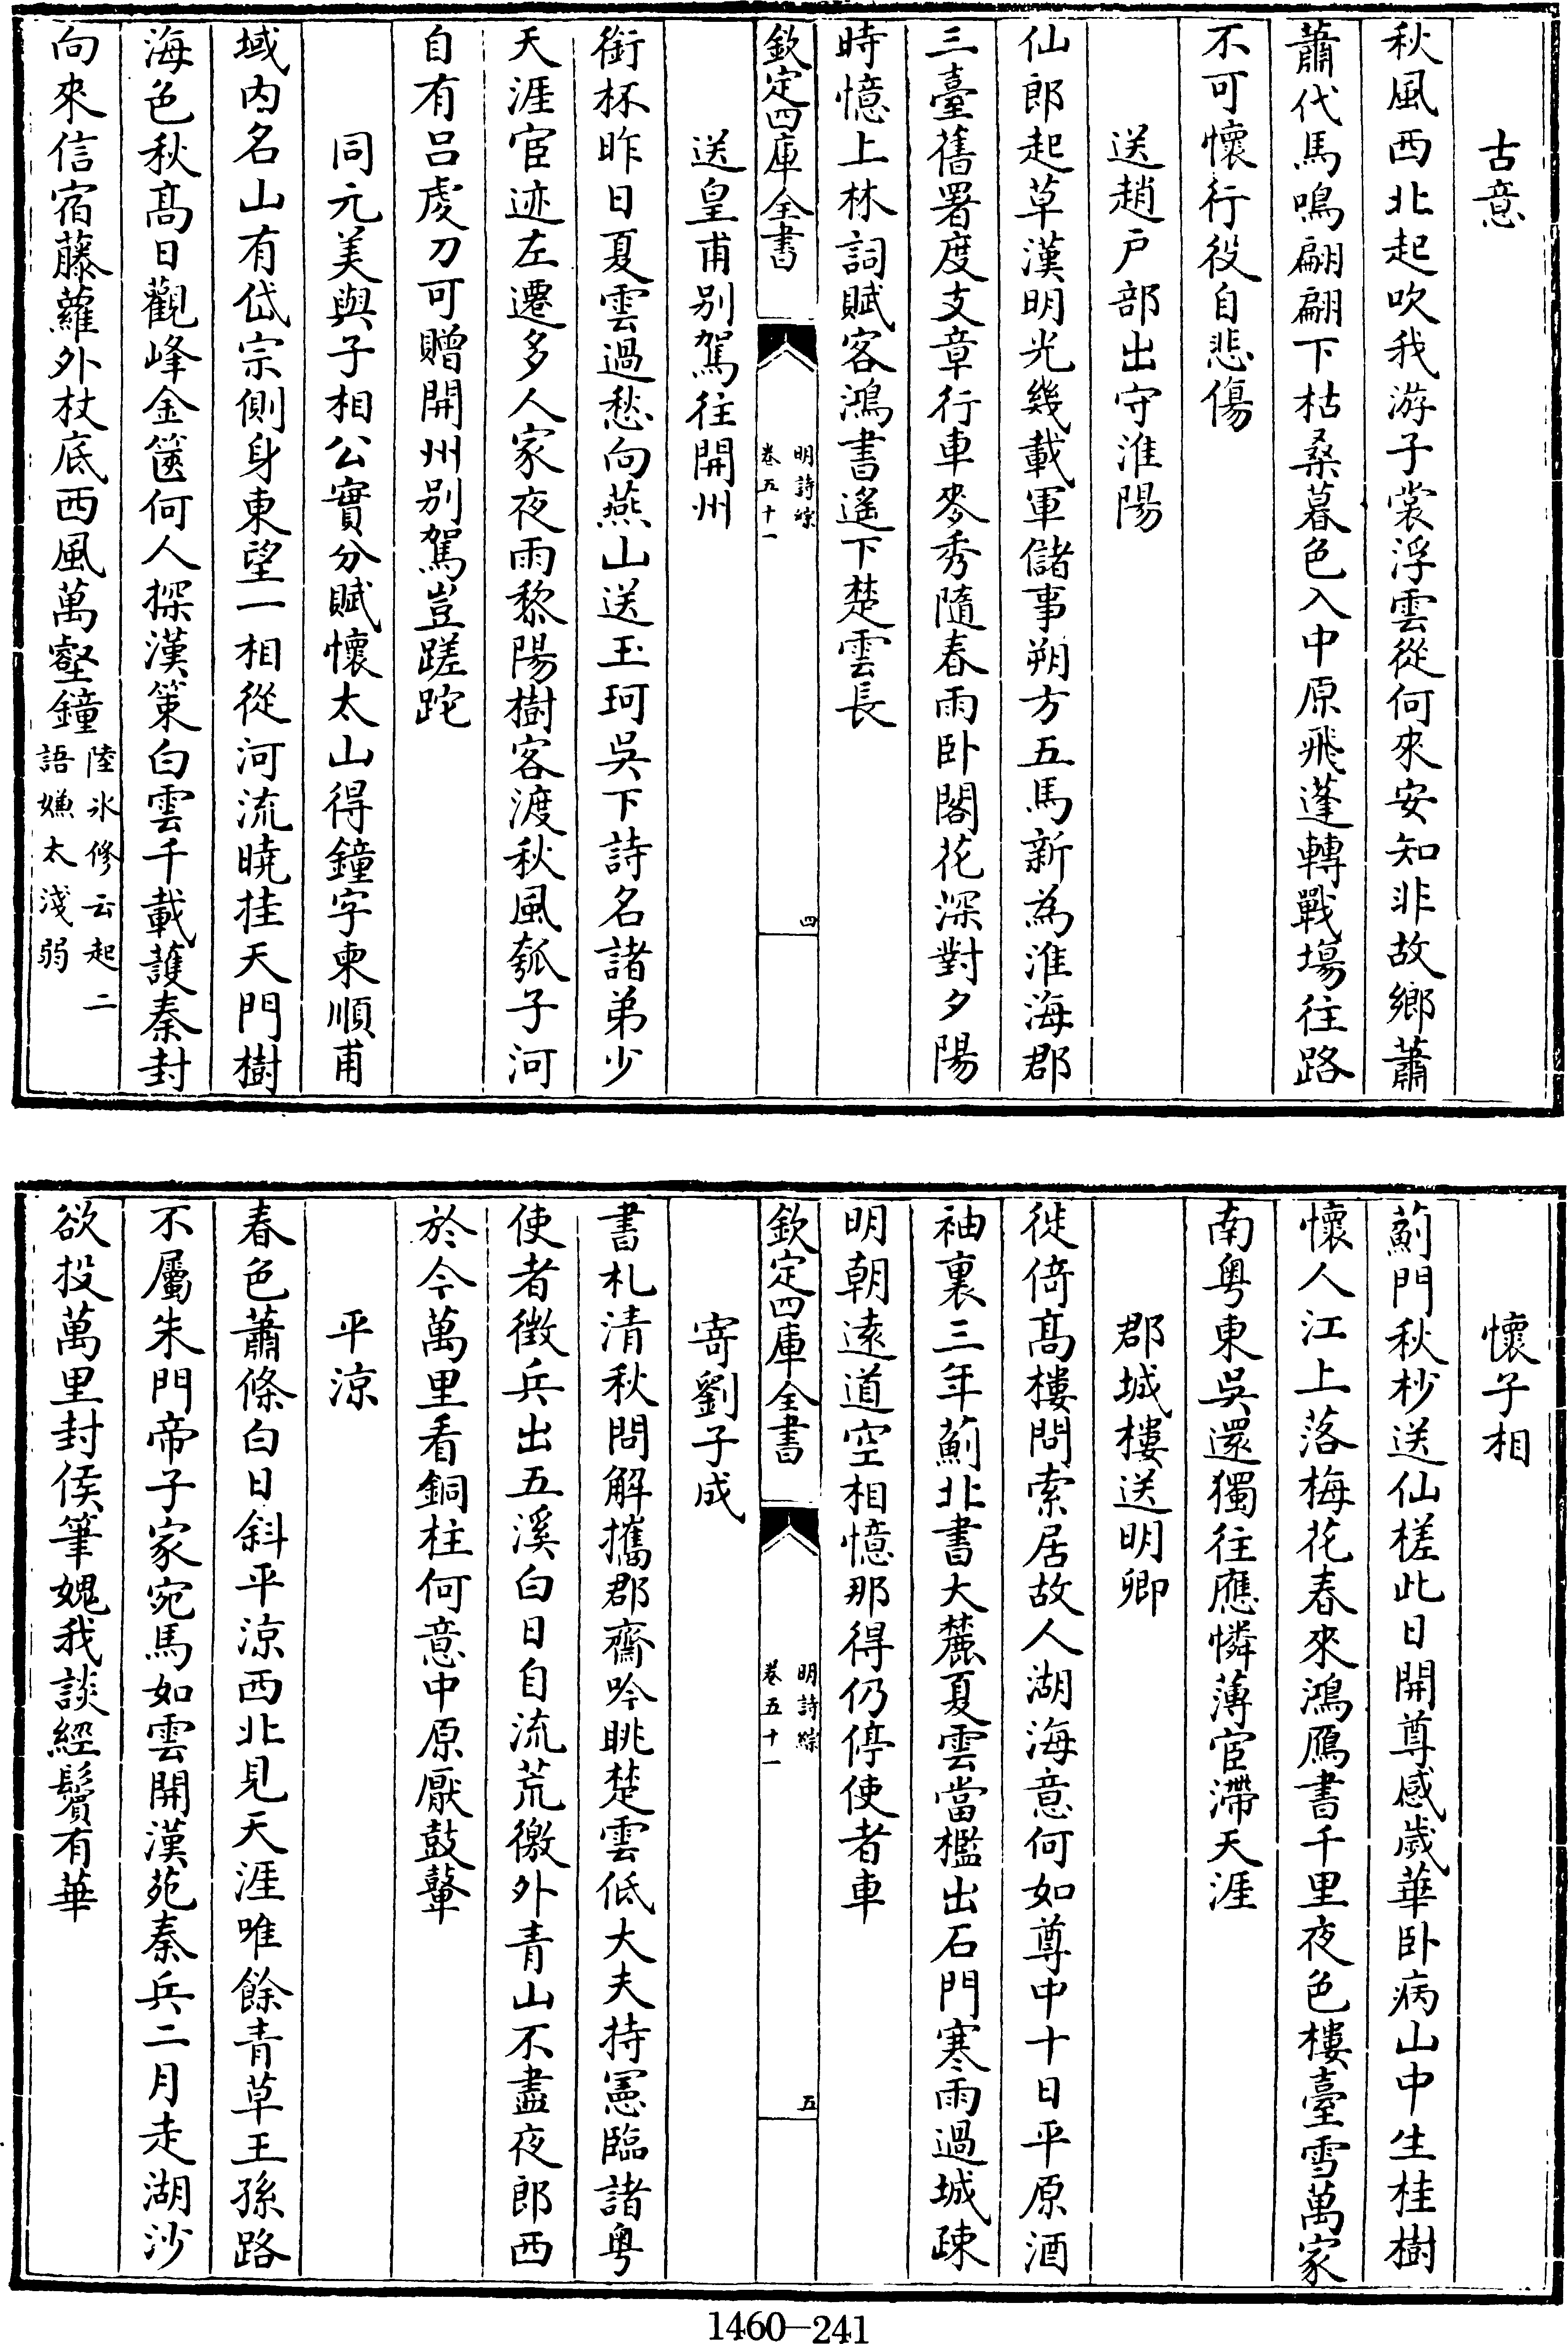 古意
秋風西北起吹我游子裳浮雲從何來安知非故鄉蕭
蕭代馬鳴翩翩下枯桑暮色入中原飛蓬轉戰場往路
不可懷行役自悲傷
送趙户部出守淮陽
仙郎起草漢明光幾載軍儲事朔方五馬新為淮海郡
三臺舊署度支章行車麥秀隨春雨卧閣花深對夕陽
時憶上林詞賦客鴻書遙下楚雲長
欽定四庫全書
明詩綜
卷五十一
四
送皇甫别駕往開州
銜杯昨日夏雲過愁向燕山送玉珂吳下詩名諸弟少
天涯宦迹左遷多人家夜雨黎陽樹客渡秋風瓠子河
自有吕虔刀可贈開州别駕豈蹉跎
同元美與子相公實分賦懷太山得鐘字柬順甫
域内名山有岱宗側身東望一相從河流曉挂天門樹
海色秋髙日觀峰金篋何人探漢策白雲千載護秦封
向來信宿藤蘿外杖底西風萬壑鐘
陸氷修云起二
語嫌太淺弱
懷子相
薊門秋杪送仙槎此日開尊感嵗華卧病山中生桂樹
懷人江上落梅花春來鴻鴈書千里夜色樓臺雪萬家
南粤東吳還獨往應憐薄宦滯天涯
郡城樓送明卿
徙倚髙樓問索居故人湖海意何如尊中十日平原酒
袖裏三年薊北書大麓夏雲當檻出石門寒雨過城疎
明朝逺道空相憶那得仍停使者車
欽定四庫全書
明詩綜
卷五十一
五
寄劉子成
書札清秋問解攜郡齋吟眺楚雲低大夫持憲臨諸粤
使者徴兵出五溪白日自流荒徼外青山不盡夜郎西
於今萬里看銅柱何意中原厭鼓鼙
平涼
春色蕭條白日斜平涼西北見天涯唯餘青草王孫路
不屬朱門帝子家宛馬如雲開漢苑秦兵二月走湖沙
欲投萬里封侯筆媿我談經鬢有華
1460—241